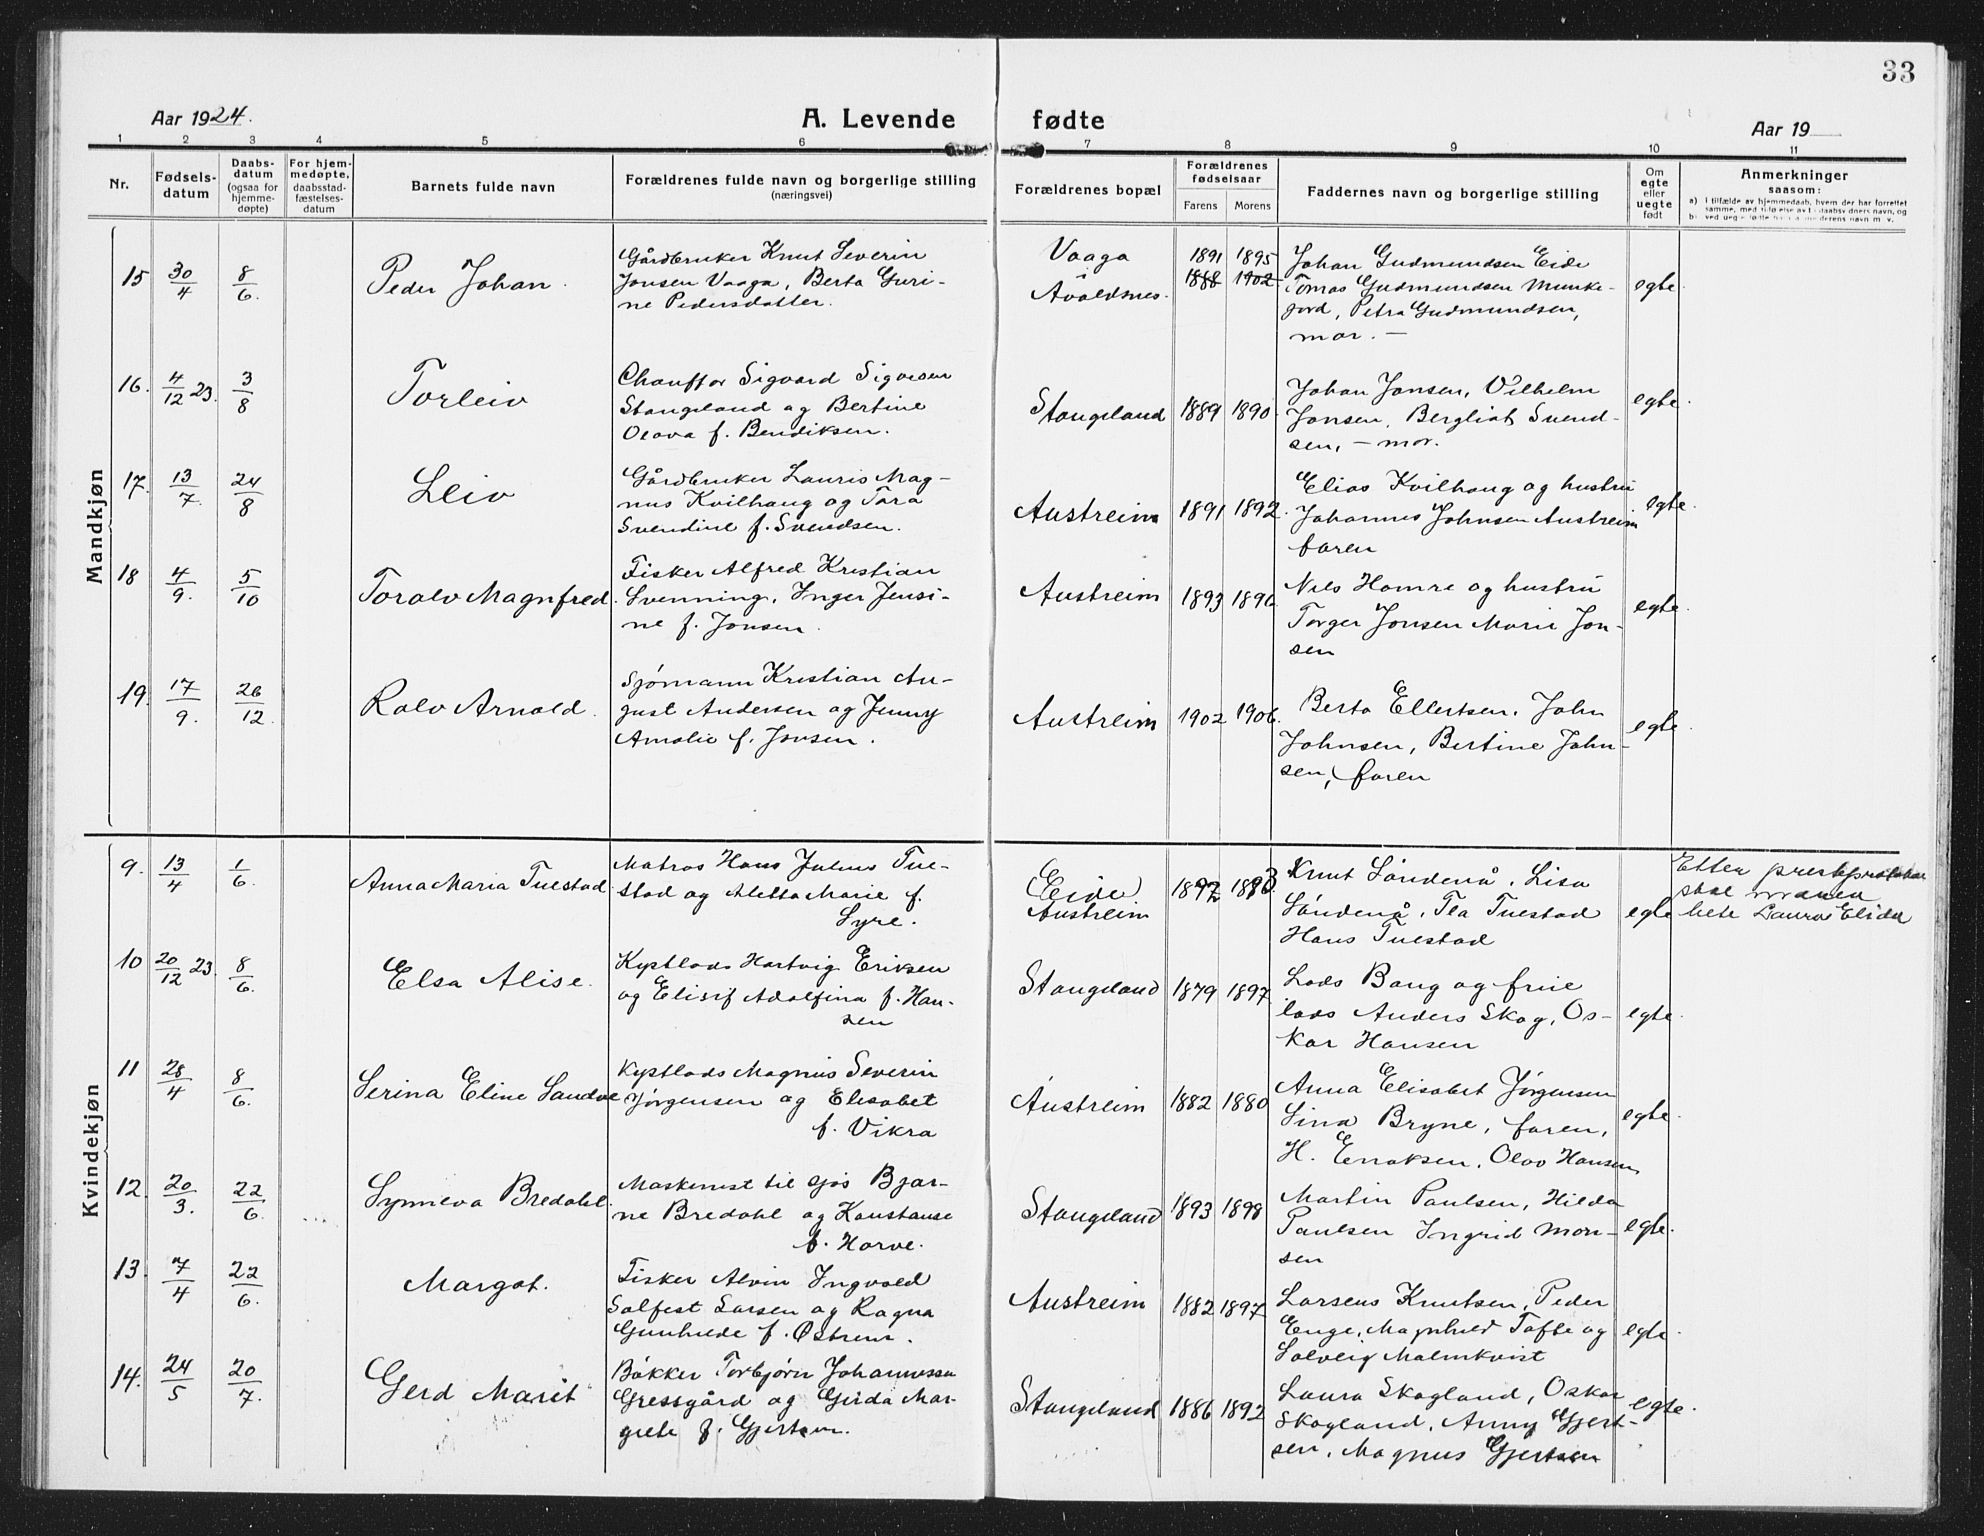 33
Aar 1924.
A. Levende fødte
Aar 19
1 2 3 4 5 6 7 8 9 10 11
Nr.
Fødsels-
datum
Daabs-
datum
(ogsaa for
hjemme-
døpte)
For hjem-
medøpte,
daabsstad-
fæstelses-
datum
Barnets fulde navn
Forældrenes fulde navn og borgerlige stilling
(næringsvei)
Forældrenes bopæl
Forældrenes
fødselsaar
Farens Morens
Faddernes navn og borgerlige stilling
Om
egte
eller
uegte
født
Anmerkninger
saasom:
a) I tilfælde av hjemmedaab, hvem der har forrettet
Mandkjøn
15 30/4 8/6.
Peder Johan.
Gårdbruker Knut Severin
Jonsen Vaaga, Berta Guri-
ne Pedersdatter.
Vaaga
i
Avaldsnes.
1891 1895
1888 1902
Johan Gudmundsen Eide
Tomas Gudmundsen Munke-
jord, Petra Gudmundsen,
mor. —
egte
16. 4/12 23. 3/8
Torleiv
Chauffør Sigvard Sigvesen
Stangeland og Bertine
Olava f. Bendiksen.
Stangeland 1889 1890
Johan Jonsen, Vilhelm
Jonsen, Bergliot Svend-
sen, — mor.
egte.
17. 13/7. 24/8
Leiv
Gårdbruker Lauris Mag-
nus Kvilhaug og Tora
Svendine f. Svendsen.
Austreim 1891 1892.
Elias Kvilhaug og hustru
Johannes Johnsen Austreim
faren
egte.
18 4/9. 5/10
Toralv Magnfred.
Fisker Alfred Kristian
Svenning, Inger Jensi-
ne f. Jonsen.
Austreim 1893 1896
Nils Homre og hustru
Torger Jonsen Marie Jon-
sen
egte.
19. 17/9. 26/12.
Ralv Arnold.
Sjømann Kristian Au-
gust Andersen og Jenny
Amalie f. Jonsen.
Austreim 1902 1906.
Berta Ellertsen, John
Johnsen, Bertine John-
sen, faren
egte.
Kvindekjøn
9. 13/4 1/6.
Anna Maria Tuestad
Matros Hans Julius Tue-
stad og Aletta Marie f.
Syre.
(Eide)
Austreim
1892
Knut Søndenå, Lisa
Søndenå, Tla Tuestad
Hans Tuestad
egte
Etter presteprotokol
skal moren
hete Laura Elida
10 20/12 23. 8/6.
Elsa Alise.
Kystlods Hartvig Eriksen
og Elisif Adolfina f. Han-
sen
Stangeland 1879 1897
Lods Bang og frue
lods Anders Skog, Os-
kar Hansen
egte.
11 28/4 8/6.
Serina Eline Sandve
Kystlods Magnus Severin
Jørgensen og Elisabet
f. Vikra
Austreim 1882 1880
Anna Elisabet Jørgensen
Sina Bryne, faren,
H. Eriksen, Olav Hansen
egte.
12. 20/3. 22/6.
Synneva Bredahl.
Maskinist til sjøs Bjar-
ne Bredahl og Konstanse
f. Horve.
Stangeland 1893 1898
Martin Paulsen, Hilda
Paulsen Ingrid Mon-
sen
egte.
13. 7/4 22/6.
Margot.
Fisker Alvin Ingvald
Salfest Larsen og Ragna
Gunhilde f. Østrem.
Austreim 1882 1897
Larsens Knutsen, Peder
Enge, Magnhild Tofte og
Solveig Malmkvist
egte.
14. 24/5 20/7.
Gerd Marit
Bakker Torbjørn Johannessen
Gressgård og Gerda Mar-
grete f. Gjertsen.
Stangeland 1886 1892
Laura Skogland, Oskar
Skogland, Anny Gjert-
sen, Magnus Gjertsen
egte.